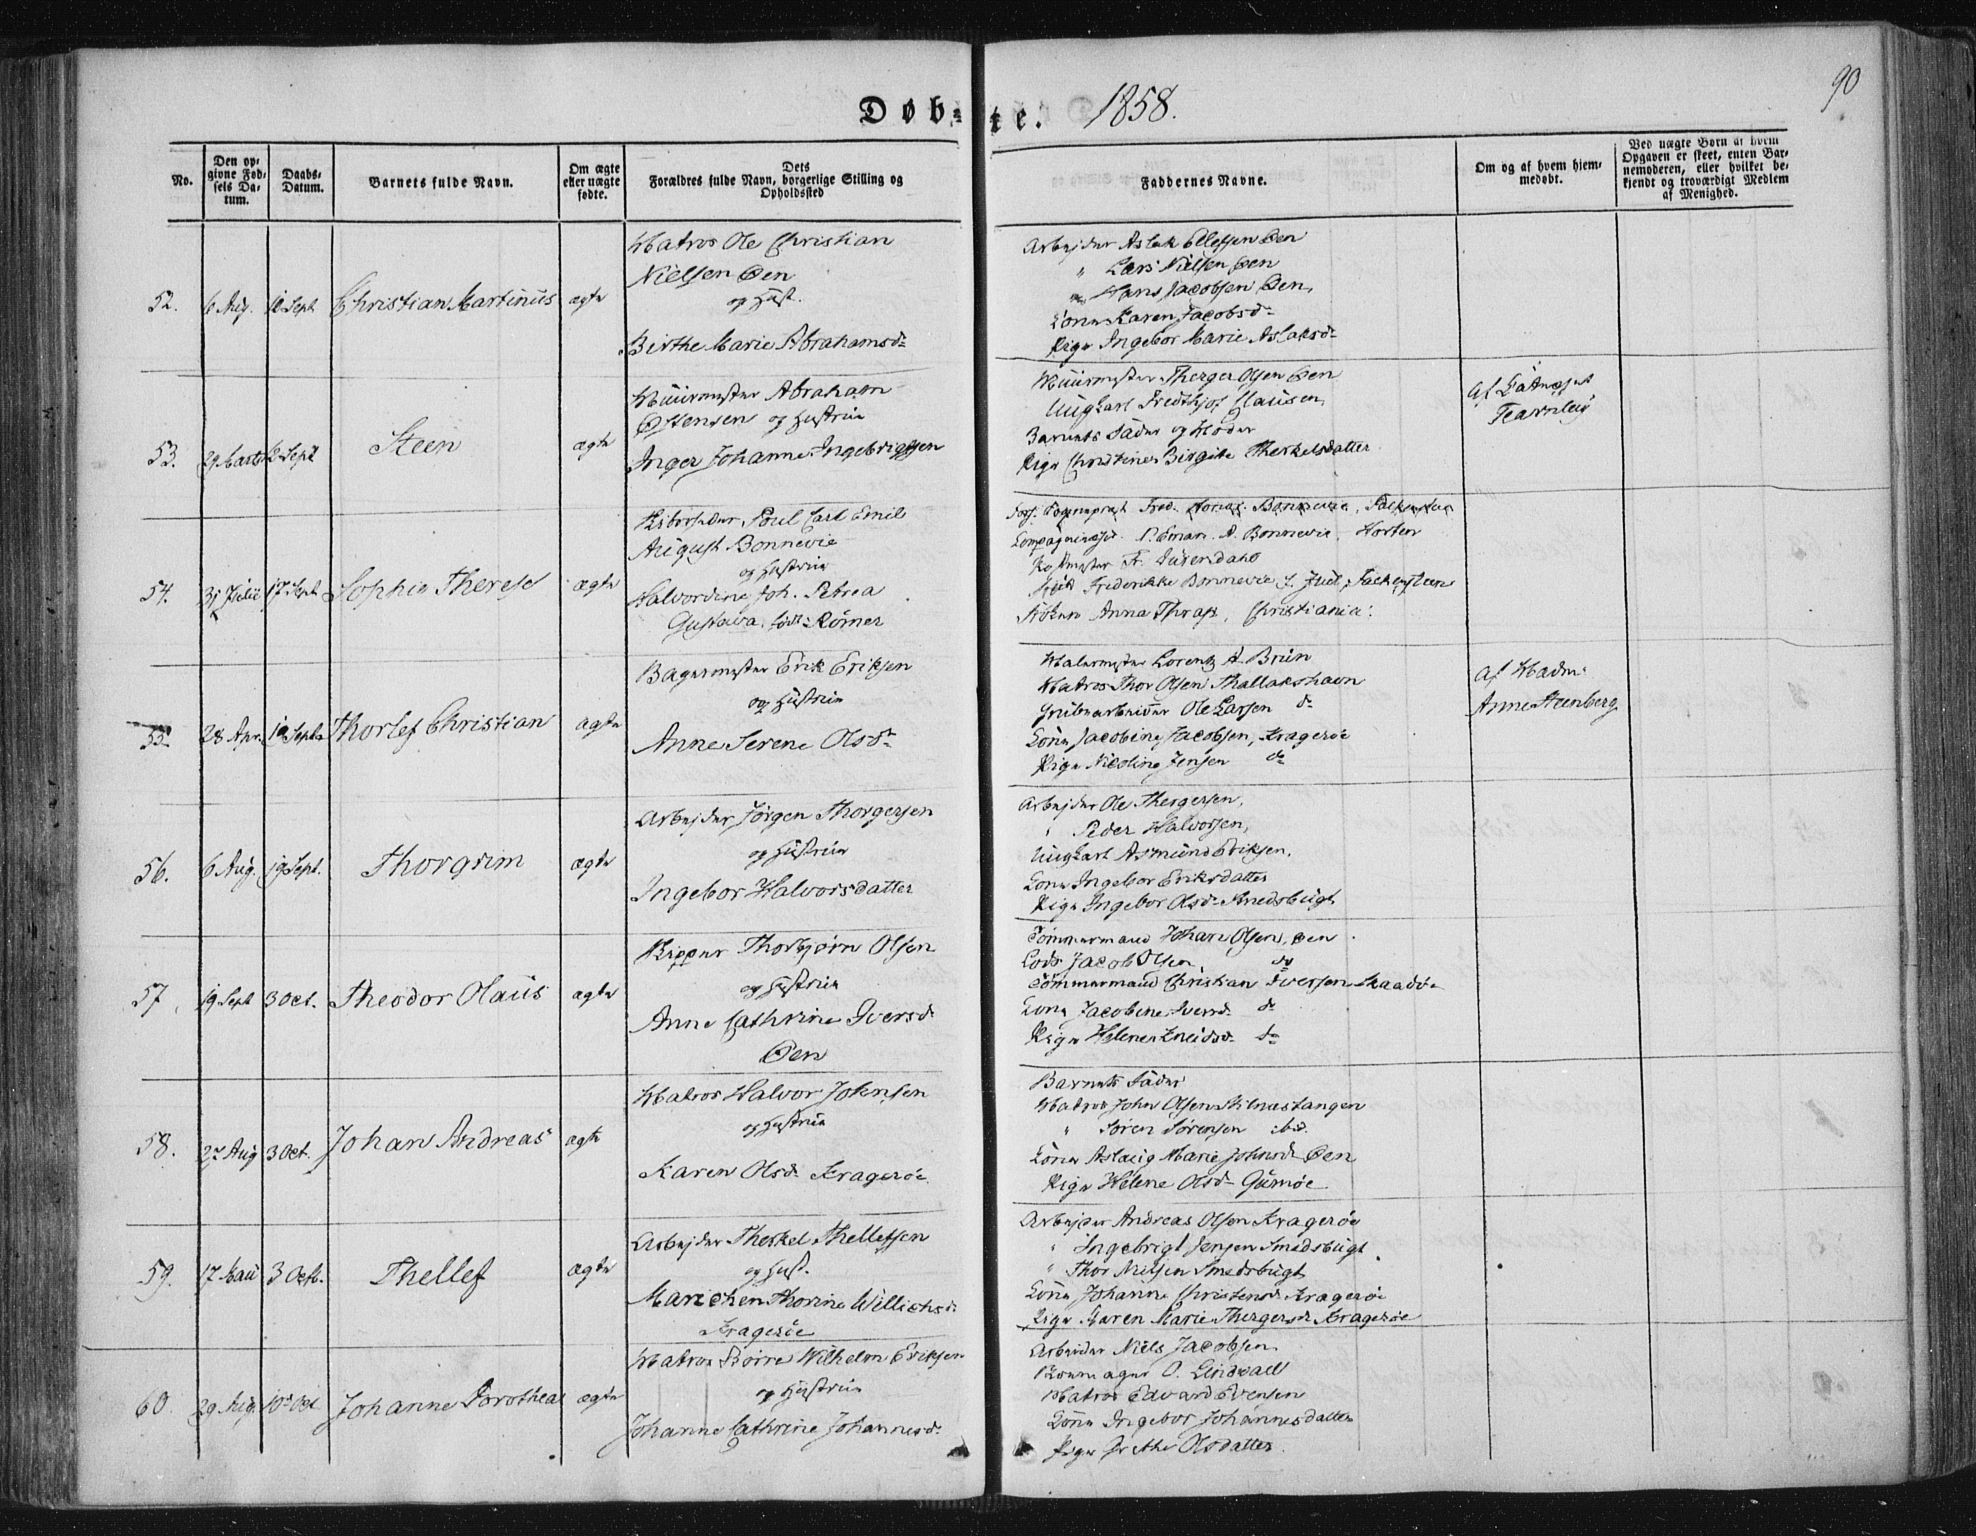 Døbte. 1858.
90
No.
Den opgivne Fødsels Datum.
Daabs-Datum.
Barnets fulde Navn.
Om ægte eller uægte fødte.
Dets Forældres fulde Navn, borgerlige Stilling og Opholdssted
Faddernes Navne.
Om og af hvem hjemmedøbt.
Ved uægte Børn af hvem Opgaven er skeet, enten Barnemoderen, eller hvilket bekjendt og troværdigt Medlem af Menighed.
52. 6 Aug. Sept Christian Martinus ægte
Matros Ole Christian
Nielsen Øen
og Hust.
Birthe Marie Abrahamsd
Arbejder Aslak Ellefsen Øen
" Lars Nielsen Øen
" Hans Jacobsen Øen,
Kone Karen Jacobsd
Pige Ingebor Marie Aslaksd
53. 29 Marts 12 Sept Steen ægte
Muurmester Abraham
Østensen og Hustrue
Inger Johanne Ingebrigtsen
Muurmester Therger Olsen Øen
Ungkarl Fredthjof Clausen
Barnets Fader og Moder
Pige Christine Birgitte Therkelsdatter
Af
Fearnley
54. 31 Julii 17 Sept Sophie Therese ægte
Poul Carl Emil
August Bonnevie
og Hustrue
Halvordine Joh. Petrea
Gustava, født Rømer
Bonnevie,
A. Bonnevie, Horten
Frederikke Bonnevie f. Juel,
Frøken Anna Thrap, Christiania
55. 28 Apr. 19 Sept Thorlef Christian ægte
Bagermester Erik Eriksen
og Hustrue
Anne Serene Olsd
Malermester Lorentz A. Brun
Matros Thor Olsen Thallakshavn
Grubearbeider Ole Larsen do
Kone Jacobine Jacobsen, Kragerøe
Pige Nicoline Jensen do
Af Madm.
Anne Steenberg
56. 6 Aug. 19 Sept. Thorgrim ægte
Arbejder Jørgen Thorgersen
og Hustrue
Ingebor Halvorsdatter
Arbejder Ole Thergersen,
" Peder Halvorsen,
Ungkarl Asmund Eriksen,
Kone Ingebor Eriksdatter
Pige Ingebor Olsd Smedsbugt
57. 19 Sept 3 Oct. Theodor Olaus ægte
Thorbjørn Olsen
og Hustrue
Anne Cathrine Iversd
Øen
Tømmermand Johan Olsen, Øen
Lods Jacob Olsen do
Tømmermand Christian Iversen Skaadø
Kone Jacobine Iversd. do
Pige Helene do
58. 27 Aug 3 Oct. Johan Andreas ægte
Matros Halvor Johnsen
og Hustrue
Karen Olsd. Kragerøe
Barnets Fader
Matros John Olsen Stilnæstangen
" Søren Sørensen ibid.
Kone Aslaug Marie Johnsd Øen
Pige Helene Olsd Gumøe
59. 17 Maii 3 Octb. Thellef ægte
Arbejder Therkel Thellefsen
og Hust.
Marichen Thorine Willichsd.
Kragerøe
Arbejder Andreas Olsen Kragerøe
" Ingebrigt Jensen Smedsbugt
" Thor Nielsen Smedsbugt
Kone Johanne Christensd Kragerøe
Pige Karen Marie Thergersd Kragerøe
60. 29 Aug. 10 Oct Johanne Dorothea ægte
Matros Børre Wilhelm Eriksen
og Hustrue
Johanne Cathrine Johannesd.
Arbeider Niels Jacobsen
O. Lindvall
Matros Edvard Evensen
Kone Ingebor Johannesdatter
Pige Grethe Olsdatter.